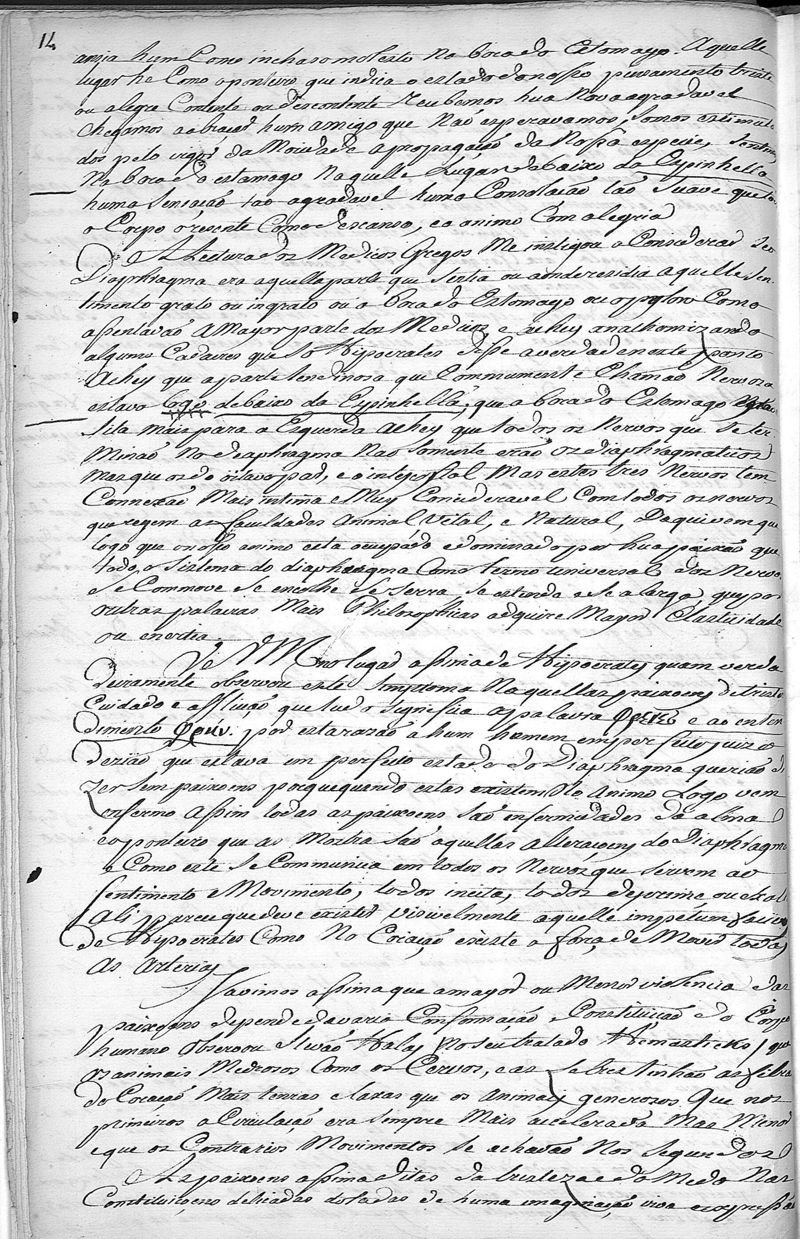 14
ancia hum como inchaso molesto na boca do Estomago. Aquelle
lugar he como o ponteiro que indica o estado do nosso pensamento triste
ou alegre Contente ou descontente Recebemos hua Nova agradavel
chegamos a abraçar hum amigo que não esperavamos, somos estimula
dos pelo vigor da Mocidade a propagação da Nossa especie, sentimos
Na boca do estamago Naquelle Lugar debaixo da Espinhella
huma sensação tão agradavel huma Consolação tão suave que todo
o Corpo o resente Como descanso, e o animo Com alegria
A Lectura dos Medicos Gregos Me instigou a Considerar se o
Diaphragma era aquella parte que sentia ou aonde residia aquelle sen
timento grato ou ingrato ou a boca do Estomago ou o pyloro Como
assentavão a Mayor parte dos Medicos e achey anathomizando
alguns Cadaveres que só Hypocrates disse a verdade neste ponto
Achey que a parte tendinosa que Commumente Chamão Nervosa
estava logo debaixo da Espinhella, que a boca do Estomago
sita mais para a Esquerda Achey que todos os Nervos que se ter
Minão No diaphragma Não somente erão os diaphragmaticos
mas que os do oitavo par, e o intercostal Mas estes tres Nervos tem
Connexão Mais intima e Muy Consideravel Com todos os nervos
que regem as faculdades Animal Vital, e Natural, Daqui vem que
logo que o nosso animo esta ocupado e dominado por hua paixão que
todo o Sistema do diaphragma Como termo universal dos Nervos
se Commove se encolhe se serra se estende e se alarga que por
outras palavras Mais Philosophicas adquire Mayor Elasticidade
ou enertia.
Ve VM no lugar assima de Hypocrates quam verda
deiramente observou este Symptoma Naquellas paixoens de triste
Cuidado e aflição que tudo significa a palavra φρενες e ao enten
dimento φρην. por esta razão a hum homem em perfeito juizo
dezião que estava em perfeito estado do Diaphragma querião di
zer sem paixoens porque quando estas existem No Animo Logo vem
enfermo Assim todas as paixoens são enfermidades da alma
e o ponteiro que as Mostra são aquellas alteracoens do Diaphragma
e Como este se Communica em todos os Nervos, que servem ao
sentimento e Movimento, todos incita, todos deprime ou exalta
Ali parece que deve existir visivelmente aquelle impetum faciens
de Hypocrates Como No Coração existe a força de Mover todas
As Arterias
Havimos assima que a mayor ou Menor violencia das
paixoens depende da varia Conformação e Constituição do Corpo
humano Observou Estevão Hales No seu tratado Hemasticks, que
os animais Medrosos Como os Cervos, e as Lebres tinhão as fibras
do Coração Mais tenras e laxas que os Animaes generosos Que nos
primeiros a Circulação era sempre Mais accelerada Mas Menor
e que os Contrarios Movimentos se achavão Nos segundos
As paixoens assima ditas da tristeza e do Medo Nas
Constituiçoens delicadas dotadas de huma imaginação viva